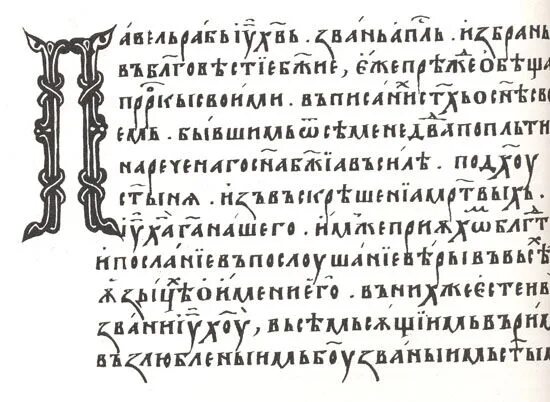 Павелъ рабъ іу҃ хв҃ъ . званъ ап҃лъ . избранъ
въ бл҃говѣстіе бж҃ие, еже прѣже обѣща
прр҃кы своими . въ писаніи ст҃хъ о сн҃ѣ сво
емь . бывшимь ѿ сѣмене дв҃а по плъти
нареченаго сн҃а бж҃іа въ силѣ . по дх҃оу
ст҃ыня . изъ въскрѣшеніа мр҃твыхъ .
іу҃ ха҃ га҃ нашего . имже приѧхѡм бл҃гт
и посланіе въ послоушаніе вѣры въ всѣх
ѧзыцѣх о имени его . въ них же есте и в
звани іу҃ хо҃у, всѣмь сѧщіимь въ рим
възлюбленыимь бо҃у званыимь ст҃ым